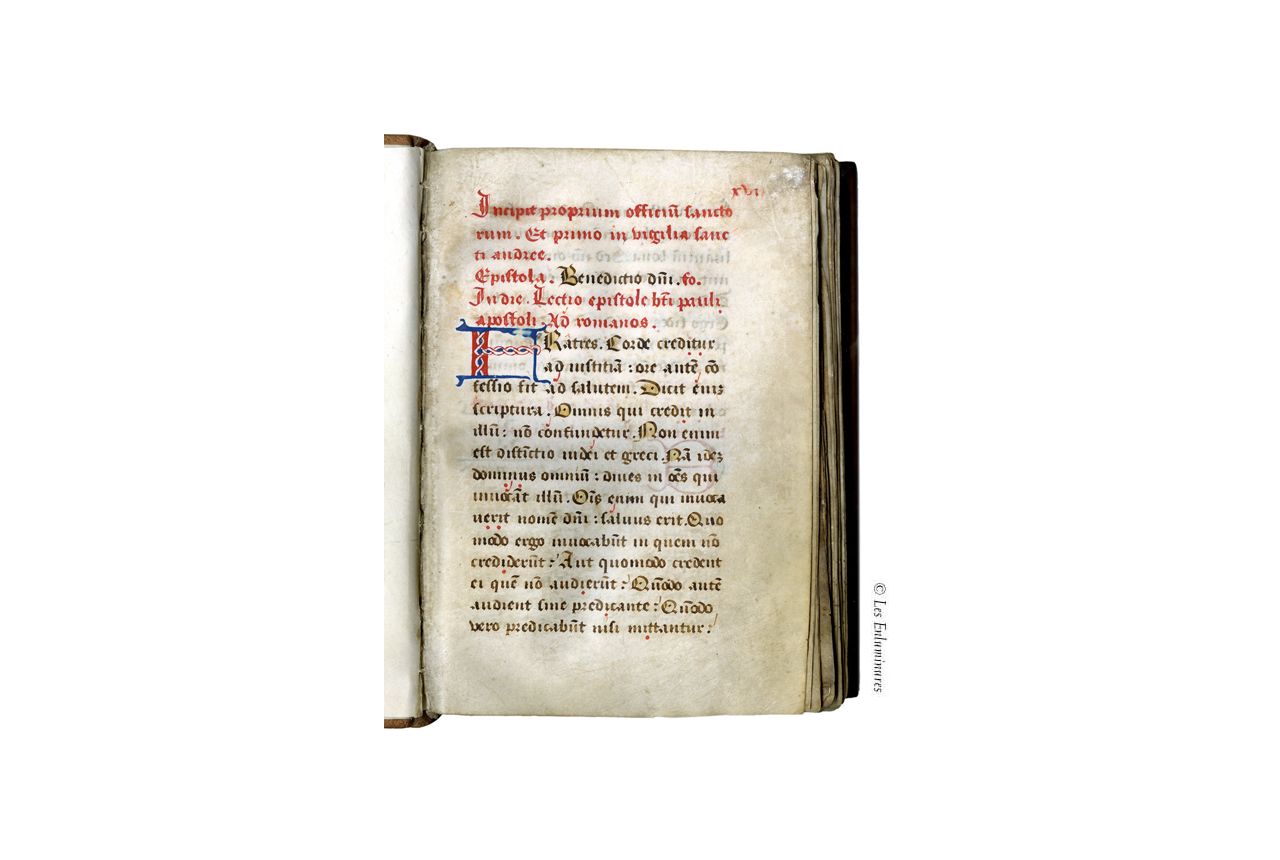 xvi
Incipit proprium officiū sancto
rum. Et primo in vigilia sanc
ti andree.
Epistola. Benedictio dñi. fo.
In die. Lectio epistole bti pauli
apostoli. Ad romanos.
FRatres. Corde creditur
ad iustitiā: ore autē cō
fessio fit ad salutem. Dicit eniz
scriptura. Omnis qui credit in
illū: nō confundetur. Non enim
est distīctio iudei et greci. Nā idez
dominus omniū: diues in oēs qui
inuocāt illū. Oīs enim qui inuoca
uerit nomē dñi: saluus erit. Quo
modo ergo inuocabūt in quem nō
crediderūt? Aut quomodo credent
ei quē nō audierūt? Quōodo autē
audient sine predicante? Quōodo
vero predicabūt nisi mittantur?
© Les Enluminures